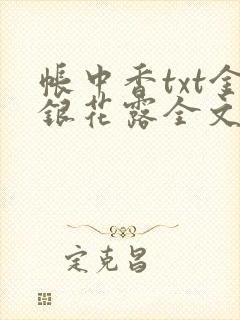 帐中香txt金
银花露全文
定克昌